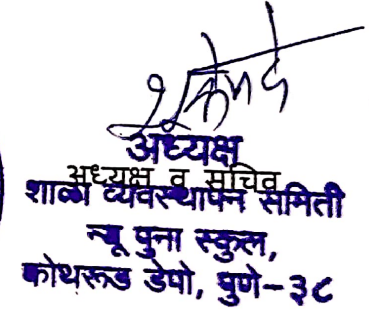 अध्यक्ष
अध्यक्ष व सचिव
शाळा व्यवस्थापन समिती
न्यू पुना स्कुल,
कोथरूड डेपो, पुणे-३८